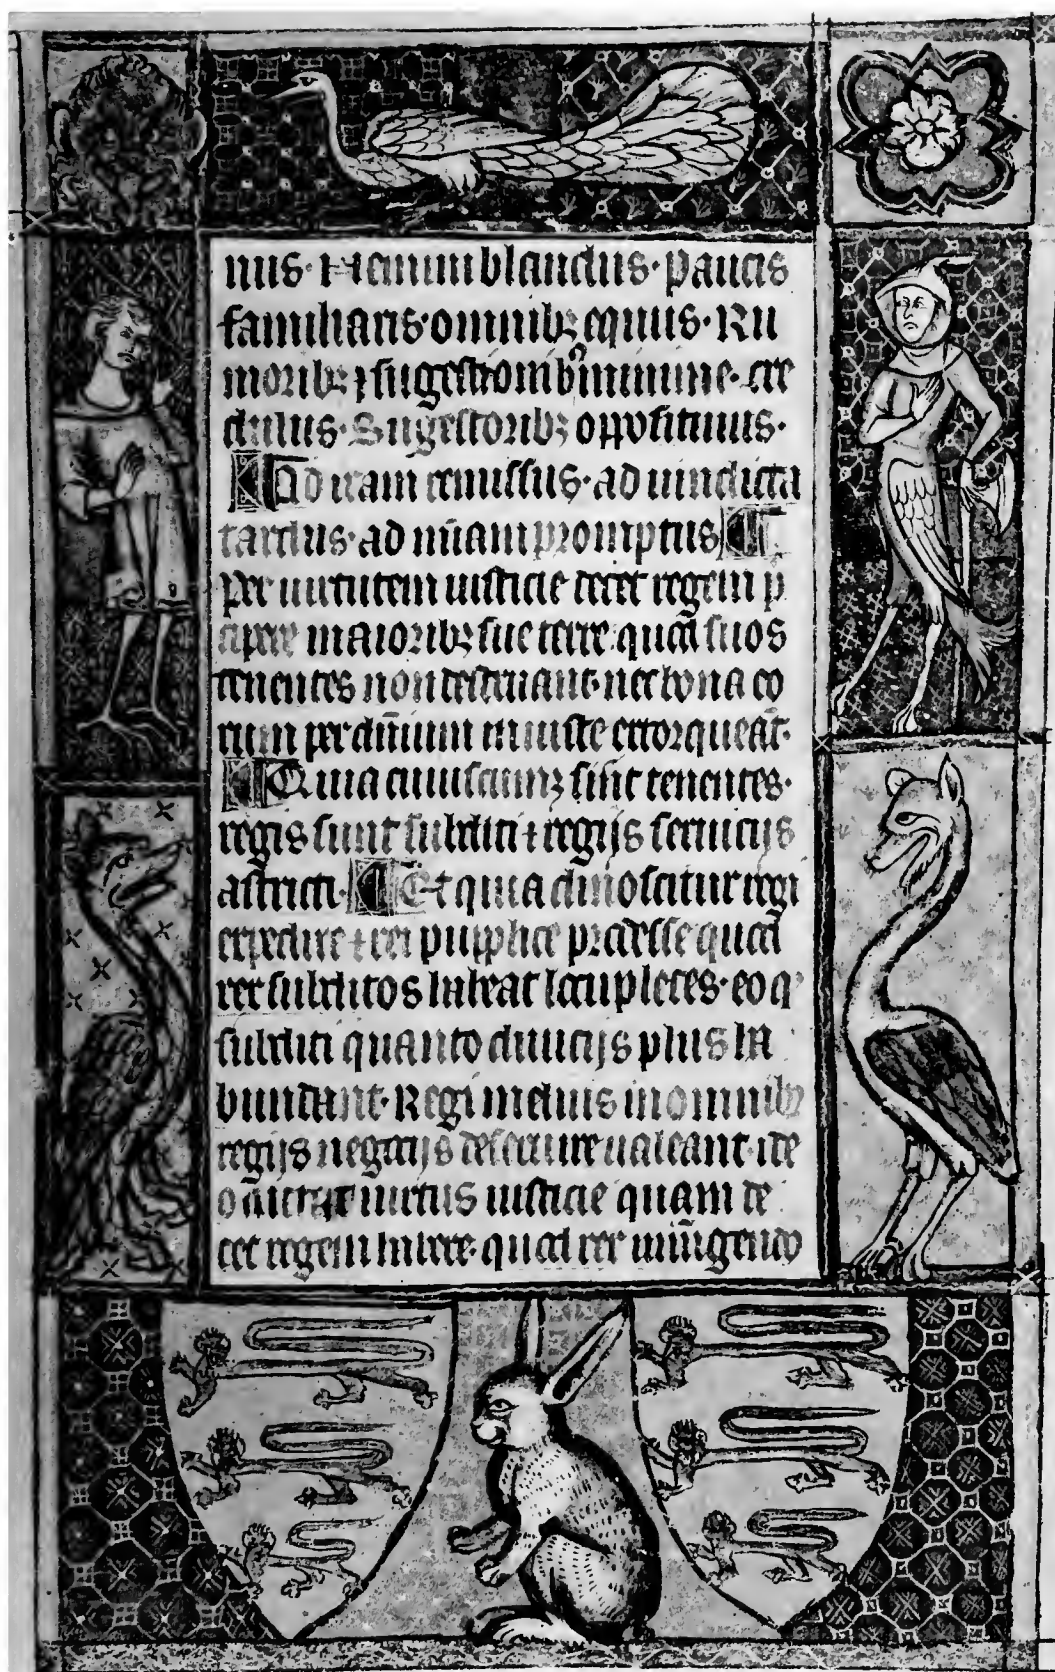 nus· Nemini blandus· paucis
familiaris· omnibꝫ equus· Ru
moribꝫ ⁊ sugestionibꝰ minime· cre
dulus· Sugestoribꝫ oppositiuus·
Ad iram remissus· ad uindicta
tardus· ad miīam promptus
per uirtutem iusticie decet regem p
cipere maioribꝫ sue terre· quod suos
tenentes non destruant· nec bona eo
rum per dn̄ium iniuste extorqueāt·
Quia cuiuscumqꝫ sint tenentes·
regis sunt subditi ⁊ regijs seruicijs
astricti· Et quia dinoscitur regi
expedire ⁊ rei pupplice prodesse quod
rex subditos habeat locupletes· eo qꝫ
subditi quanto diuicijs plus ha
bundant· Regi melius in omnibꝫ
regijs negocijs deseruire ualeant· ide
o dictat uirtus iusticie quam de
cet regem habere· quod rex